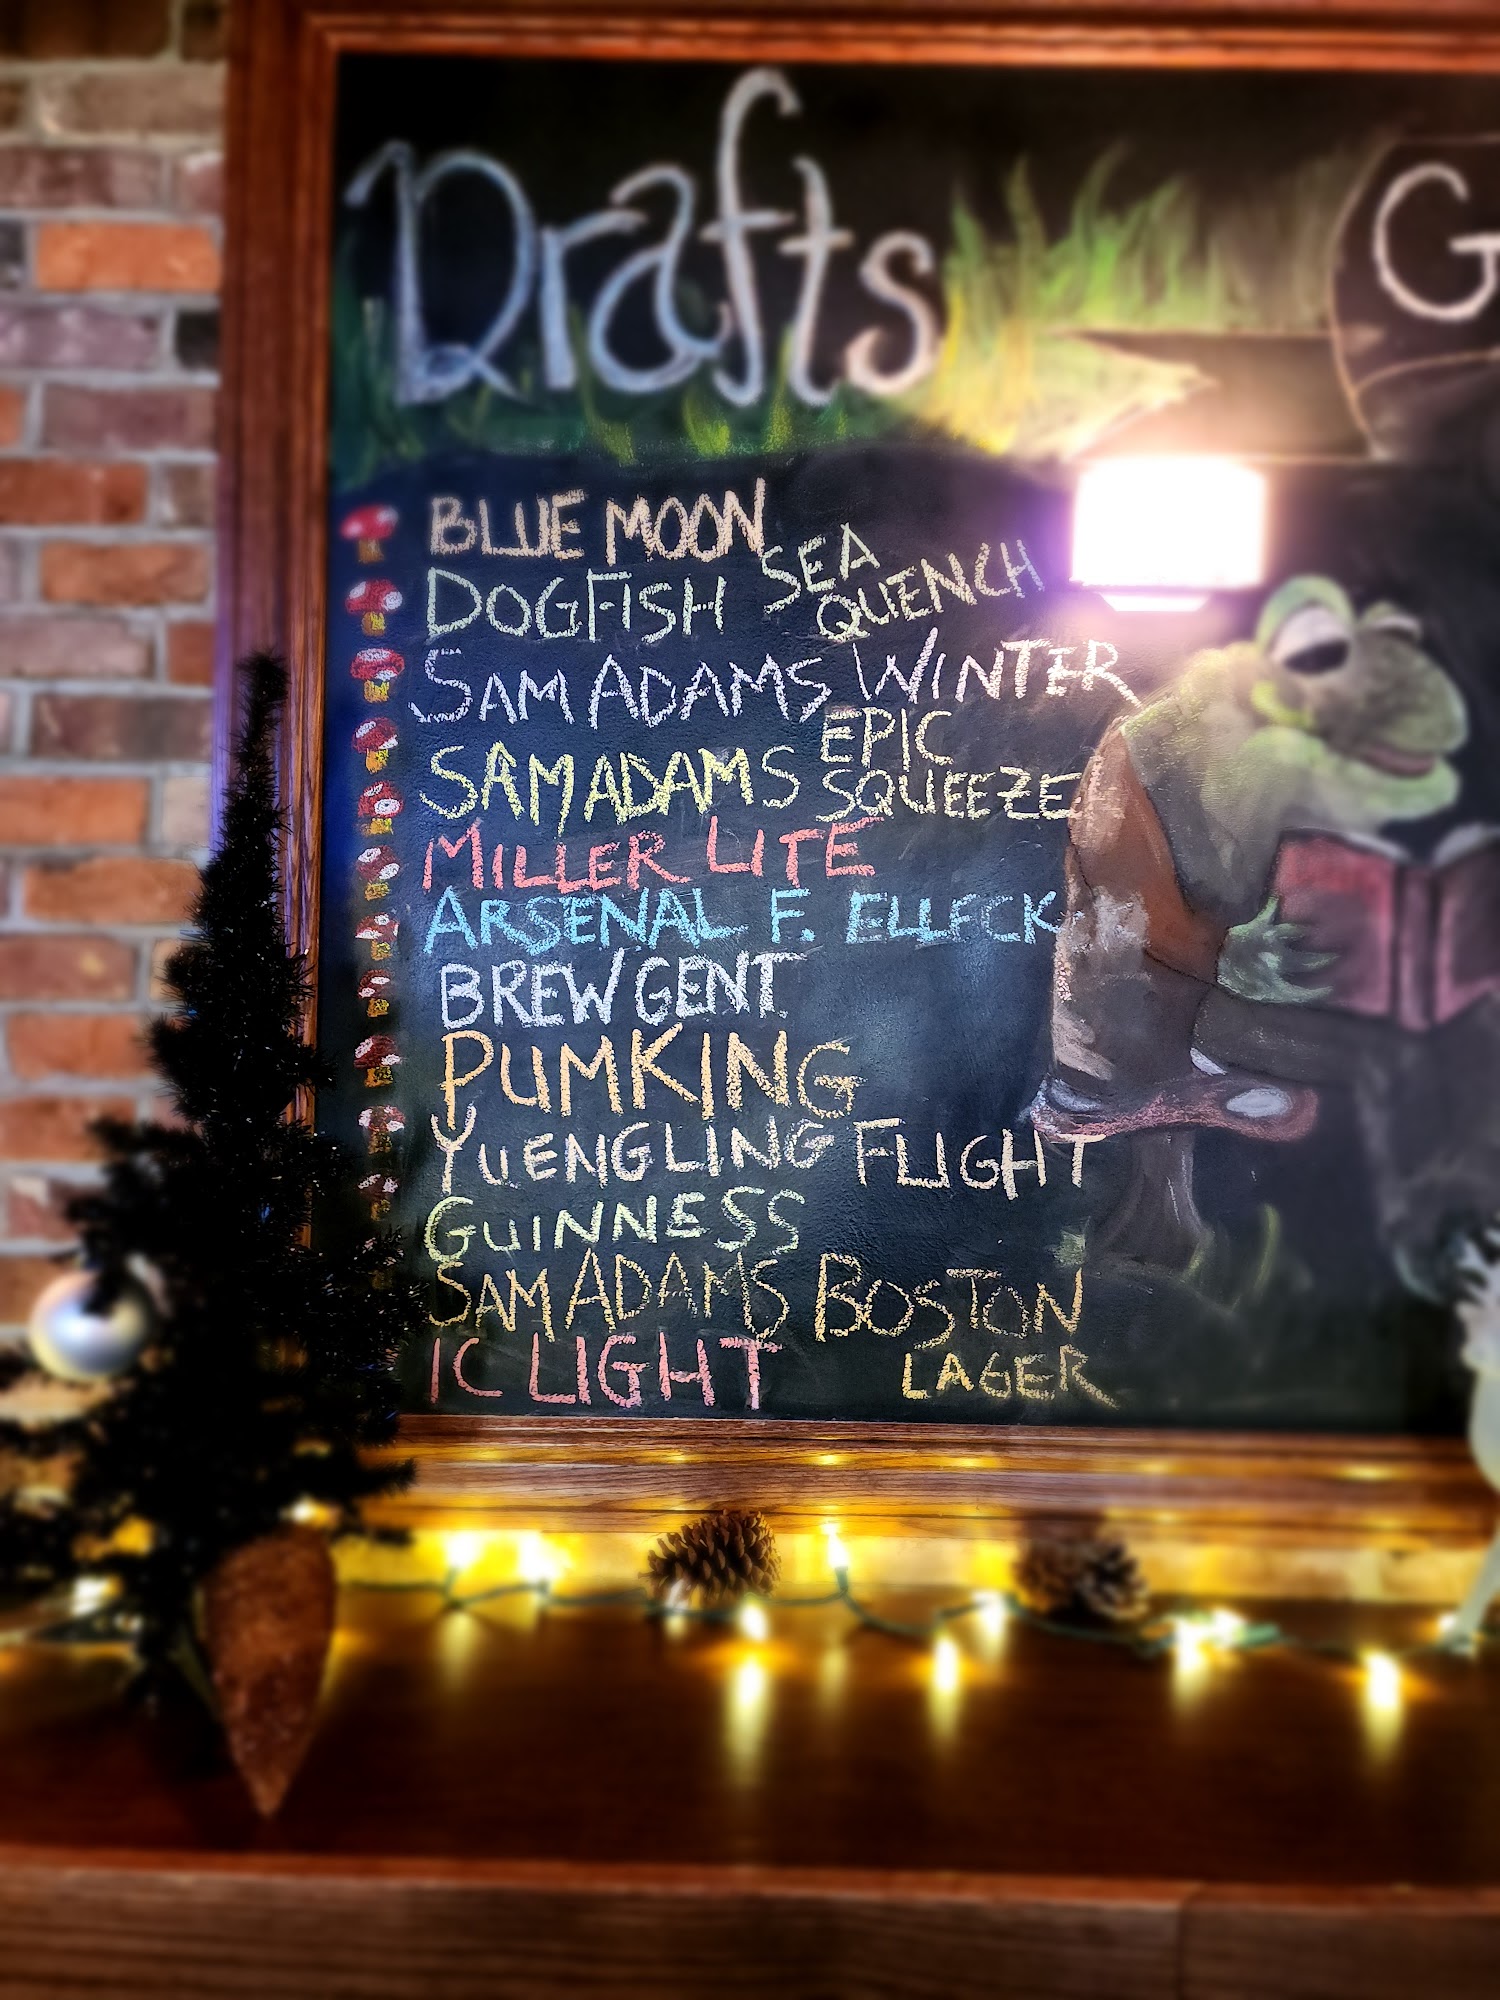 Drafts
G
BLUE MOON
DOGFISH SEA QUENCH
SAM ADAMS WINTER
SAM ADAMS EPIC SQUEEZE
MILLER LITE
ARSENAL F. ELLECK
BREW GENT
PUMKING
YUENGLING FLIGHT
GUINNESS
SAM ADAMS BOSTON LAGER
IC LIGHT